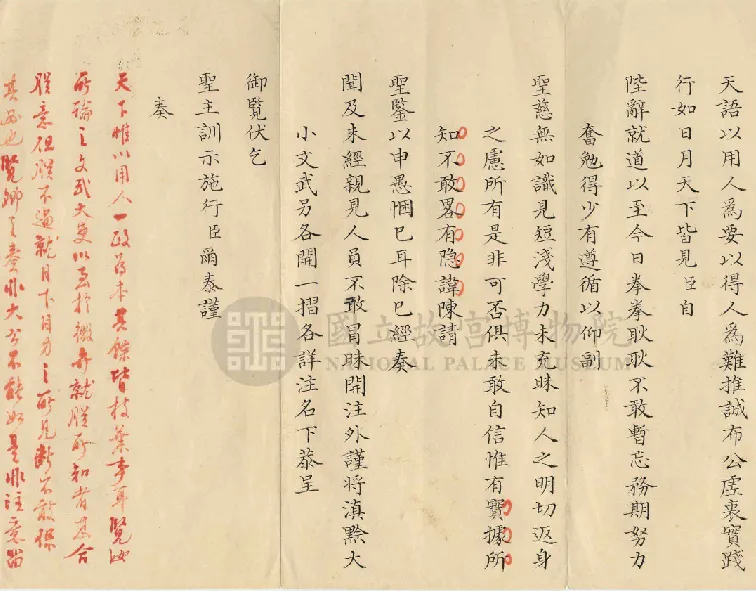 天語以用人為要以得人為難推誠布公虛衷實踐
行如日月天下皆見臣自
陛辭就道以至今日拳拳耿耿不敢暫忘務期努力
奮勉得少有遵循以仰副
聖慈無如識見短淺學力未充昧知人之明切返身
之慮所有是非可否俱未敢自信惟有實據所
知不敢畧有隐諱陳請
聖鑒以申愚悃已耳除已經奏
聞及未經親見人員不敢冒昧開注外謹将滇黔大
小文武另各開一摺各詳注名下恭呈
御覽伏乞
聖主訓示施行臣爾泰謹
奏
天下惟以用人一政為本其餘皆枝葉事耳覽汝
所論之文武大吏以至於微弁就朕所知者甚合
朕意但朕不過就目下目力之所見斷不敢保
其必也覽卿之奏非大公不能如是非注意留
國立故宮博物院
NATIONAL PALACE MUSEUM